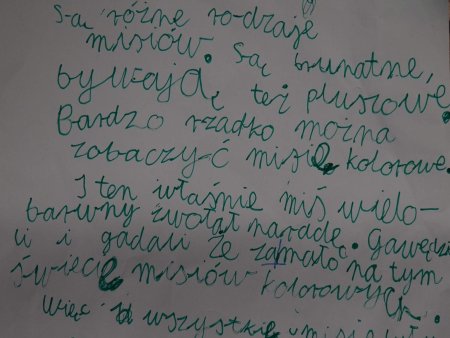 Są różne rodzaje
misiów. Są brunatne,
bywają też pluszowe.
Bardzo rzadko można
zobaczyć misie kolorowe.
I ten właśnie miś wielo-
barwny zwołał naradę. Gawędzi
li i gadali że zamało na tym
świecie misiów kolorowych.
Więc wszystkie misie